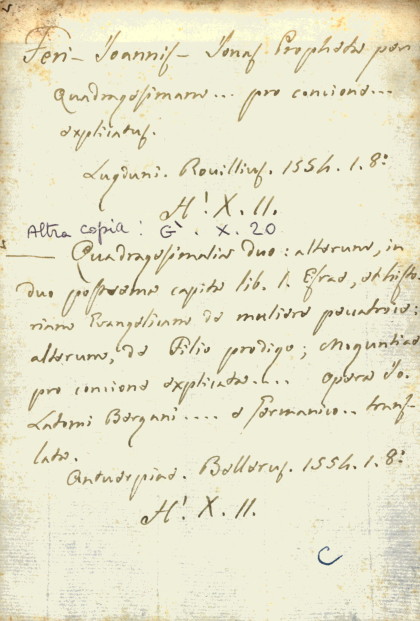 Feri - Joannis - Jonas Propheta per
Quadragesimam ... pro concione ...
explicatus.
Lugduni. Rouillius. 1554. 1. 8º
H'. X. 11.
Altra copia : G'. X. 20
— Quadragesimalia duo : alterum, in
duo postrema capita lib. I. Esrae, et histo-
riam Evangelicam de muliere peccatrice ;
alterum, de Filio prodigo ; Moguntiae
pro concione explicata .... opera Jo.
Latomi Bergani .... e Germanico .. trans-
lata.
Antuerpiae. Bellerus. 1554. 1. 8º
H'. X. 11.
C